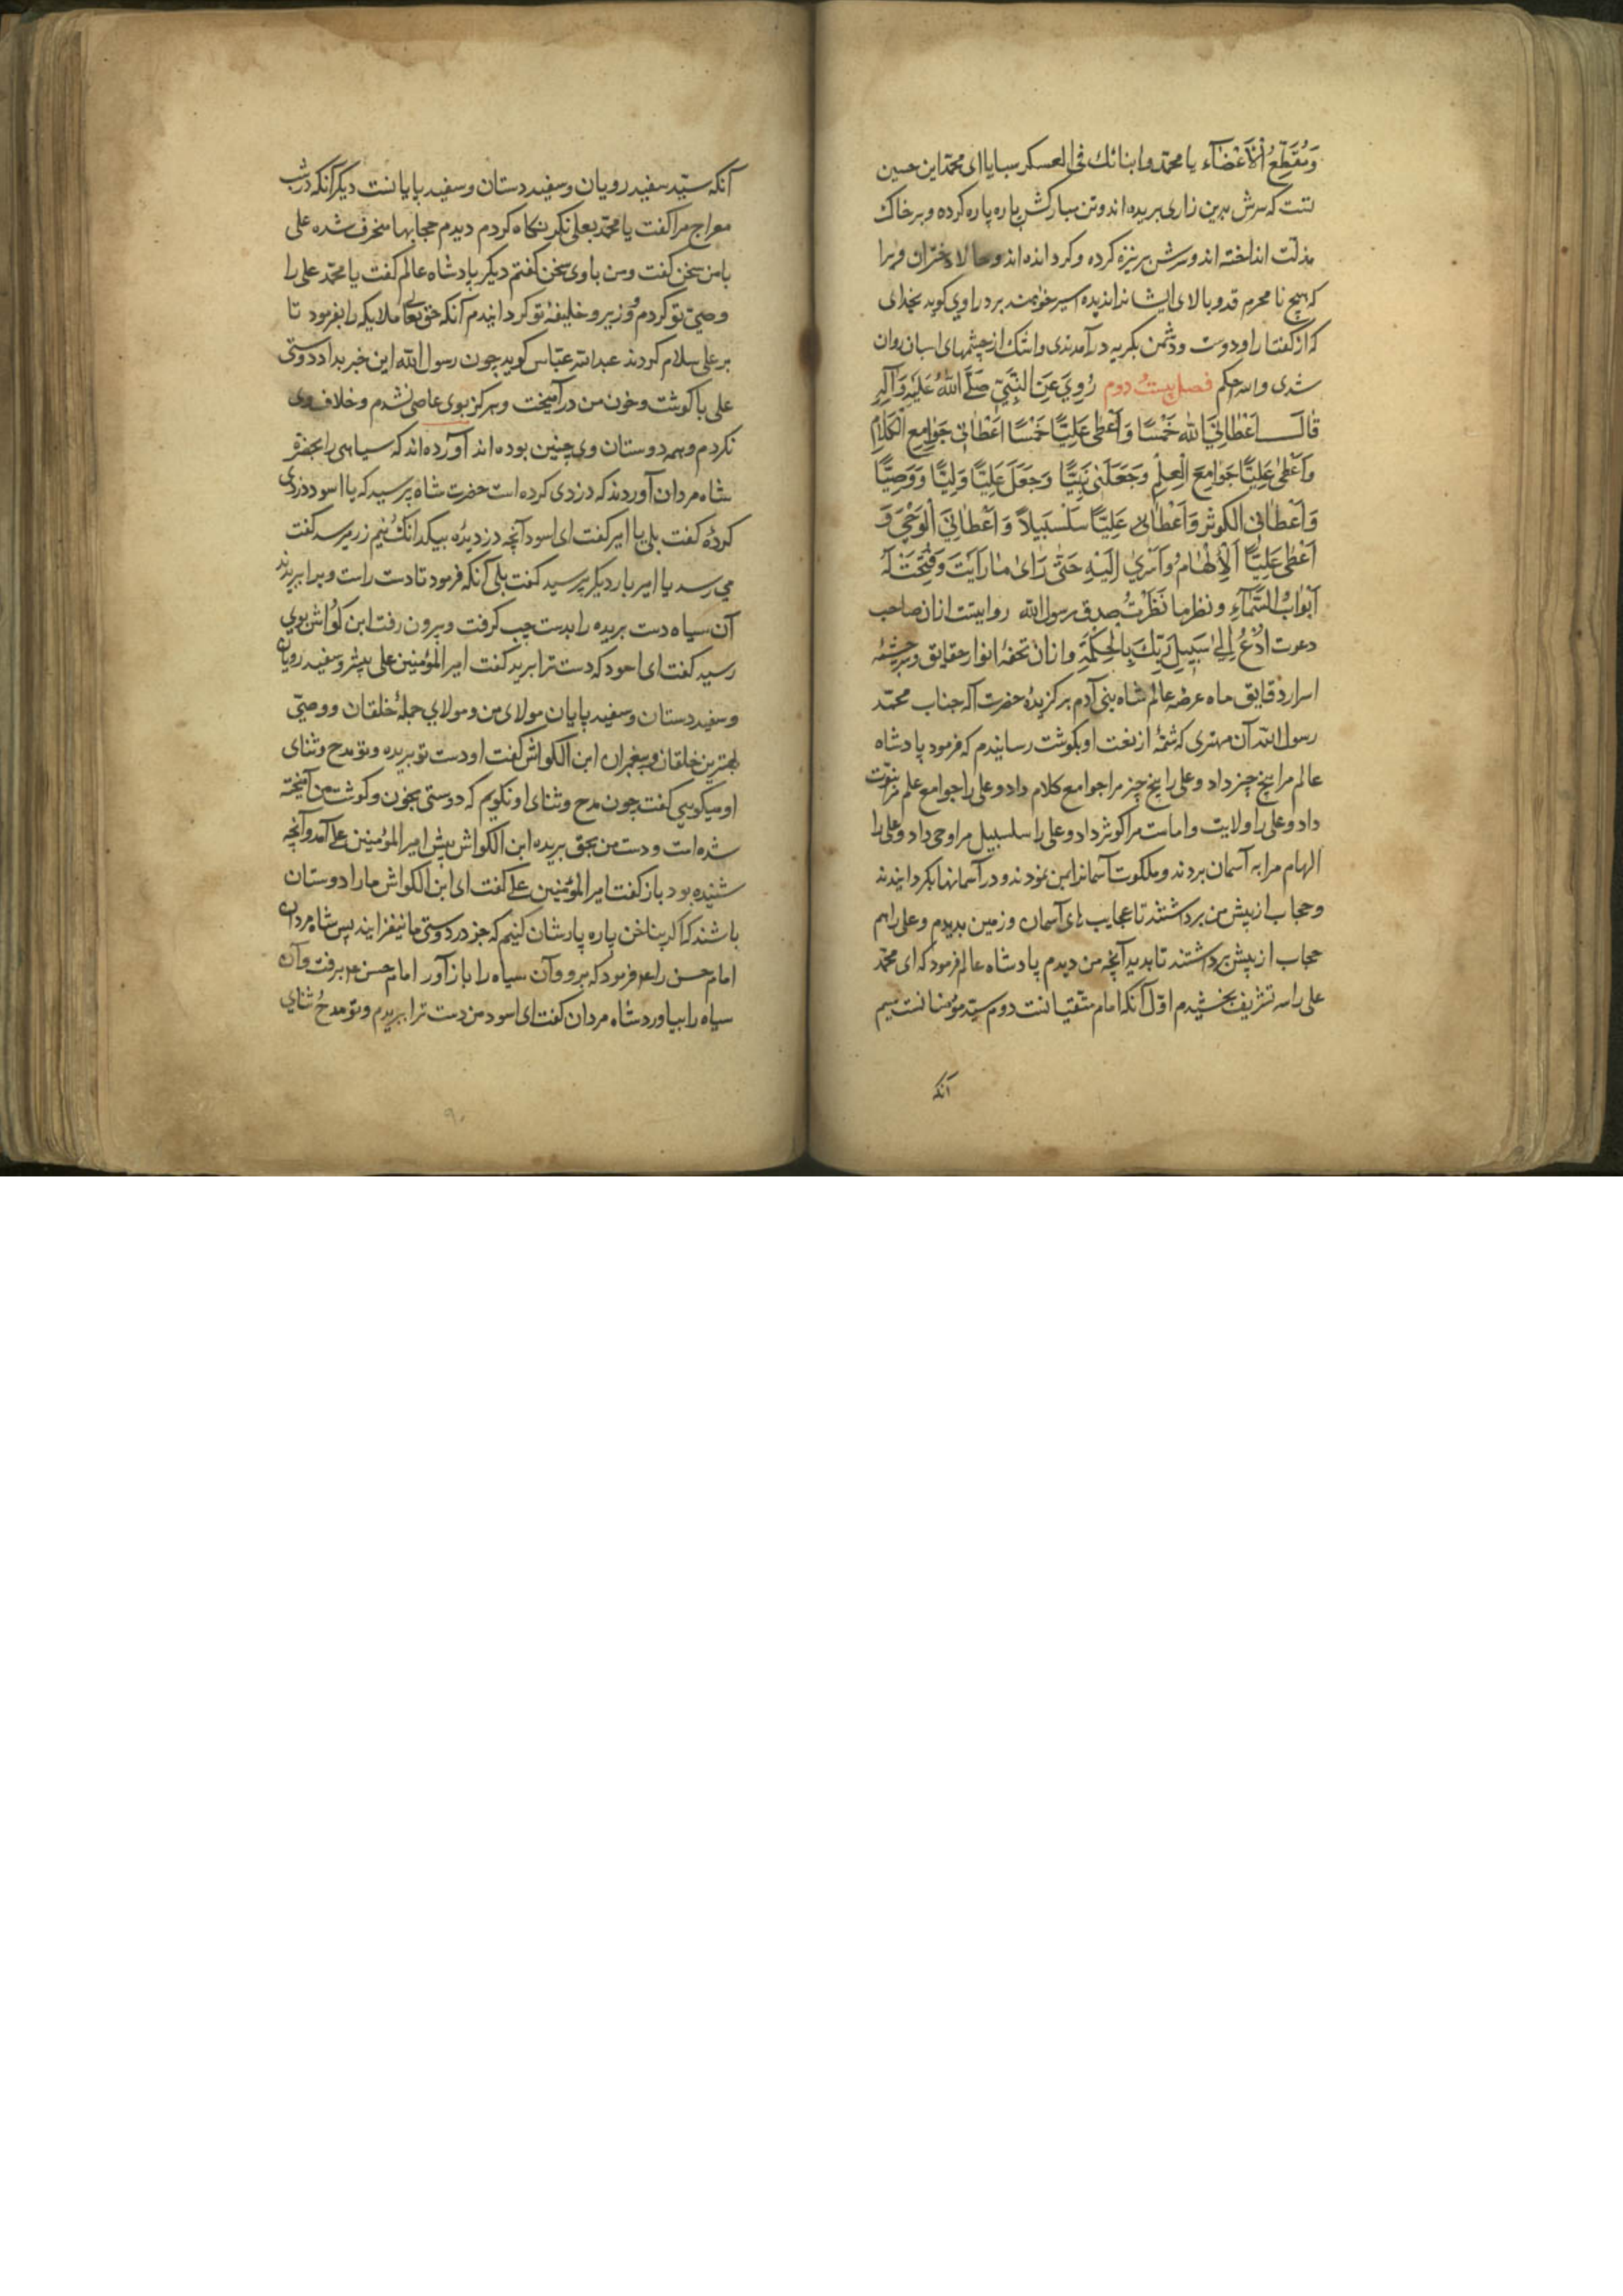 وَمُقَطَّعُ الْاَعْضَآء یا محمّد وابناتك فی العسکر سبایا ای محمّد این حسین
تست که سرش بدین زاری بریده اند وتن مبارکش پاره پاره کرده و بر خاك
مذلّت انداخته اند وسرش بر نیزه کرده و کردانده اند و حالا دختران ویرا
که هیچ نا محرم قد و بالای ایشانرا ندیده اسیر خواهند برد راوی کوید بخدای
که از کفتار او دوست ودشمن بکریه درآمدندی واشك از چشمهای اسبان روان
شدی والله احکم فصل بیست و دوم رُوِیَ عَنِ النَّبِیِّ صَلَّی اللهُ عَلَیْهِ وَآلِهِ
قَالَ اَعْطَانِیَ اللهُ خَمْسًا وَاَعْطٰی عَلِیًّا خَمْسًا اَعْطَانِی جَوَامِعَ الْکَلَامِ
وَاَعْطٰی عَلِیًّا جَوَامِعَ الْعِلْمِ وَجَعَلَنِی نَبِیًّا وَجَعَلَ عَلِیًّا وَلِیًّا وَوَصِیًّا
وَاَعْطَانِی الْکَوْثَرَ وَاَعْطٰی عَلِیًّا سَلْسَبِیلاً وَاَعْطَانِیَ الْوَحْیَ وَ
اَعْطٰی عَلِیًّا اَلْاِلْهَامَ وَاَسْرٰی اِلَیْهِ حَتّٰی رَاٰی مَا رَاَیْتَ وَفُتِحَتْ لَهُ
اَبْوَابُ السَّمَآءِ ونظر ما نَظَرْتُ صدق رسول الله روایتست ازان صاحب
دعوت اُدْعُ اِلٰی سَبِیلِ رَبِّكَ بِالْحِکْمَةِ وازان تحفهٔ انوار حقایق وسرچشمهٔ
اسرار دقایق ماه عرصه عالم شاه بنی آدم برکزیدهٔ حضرت اله جناب محمّد
رسول الله آن مهتری که شمّهٔ از نعت او بکوشت رسانیدم که فرمود پادشاه
عالم مرا پنج چیز داد وعلی را پنج چیز مرا جوامع کلام داد وعلی را جوامع علم مرا نبوّت
داد وعلی را ولایت وامامت مرا کوثر داد وعلی را سلسبیل مرا وحی داد وعلی را
الهام مرا به آسمان بردند وملکوت آسمانرا بمن نمودند و در آسمانها بکردانیدند
وحجاب از پیش من برداشتند تا عجایب های آسمان وزمین بدیدم وعلی را هم
حجاب از پیش برداشتند تا بدید آنچه من دیدم پادشاه عالم فرمود که ای محمّد
علی را سه تشریف بخشیدم اوّل آنکه امام متّقیانست دوم سیّد مؤمنانست سیم
آنکه
آنکه سیّد سفید رویان وسفید دستان وسفید پایانست دیکر آنکه در شب
معراج مرا کفت یا محمّد بعلی نکر نکاه کردم دیدم حجابها منخرف شده علی
با من سخن کفت ومن با وی سخن کفتم دیکر پادشاه عالم کفت یا محمّد علی را
وصیّ تو کردم و وزیر و خلیفهٔ تو کردانیدم آنکه حق تعالی ملایکه را بفرمود تا
بر علی سلام کردند عبدالله عبّاس کوید چون رسول الله این خبر بداد دوستی
علی با کوشت وخون من درآمیخت وهرکز بوی عاصی نشدم وخلاف وی
نکردم وهمه دوستان وی چنین بوده اند آورده اند که سیاهی را بحضرة
شاه مردان آوردند که دزدی کرده است حضرت شاه پرسید که یا اسود دزدی
کردهٔ کفت بلی یا امیر کفت ای اسود آنچه دزدیدهٔ بیکدانك ونیم زر میرسد کفت
می رسد یا امیر بار دیکر پرسید کفت بلی آنکه فرمود تا دست راست ویرا ببریدند
آن سیاه دست بریده را بدست چپ کرفت وبیرون رفت ابن کوّاش بوی
رسید کفت ای اسود که دست ترا برید کفت امیر المؤمنین علی پیشرو سفید رویان
وسفید دستان وسفید پایان مولای من ومولای جملهٔ خلقان ووصیّ
بهترین خلقان وپیغمبران ابن الکواش کفت او دست تو بریده وتو مدح وثنای
او میکویی کفت چون مدح وثنای او نکویم که دوستی بخون وکوشت من آمیخته
شده است ودست من بحق بریده ابن الکواش پیش امیر المؤمنین علی آمد وآنچه
شنیده بود باز کفت امیر المؤمنین علی کفت ای ابن الکواش ما را دوستان
باشند که اکر بناخن پاره پارشان کنیم که جز در دوستی ما نیفزایند پس شاه مردان
امام حسن را ع فرمود که برو وآن سیاه را باز آور امام حسن ع برفت وآن
سیاه را بیاورد شاه مردان کفت ای اسود من دست ترا ببریدم وتو مدح وثنای
۹۰